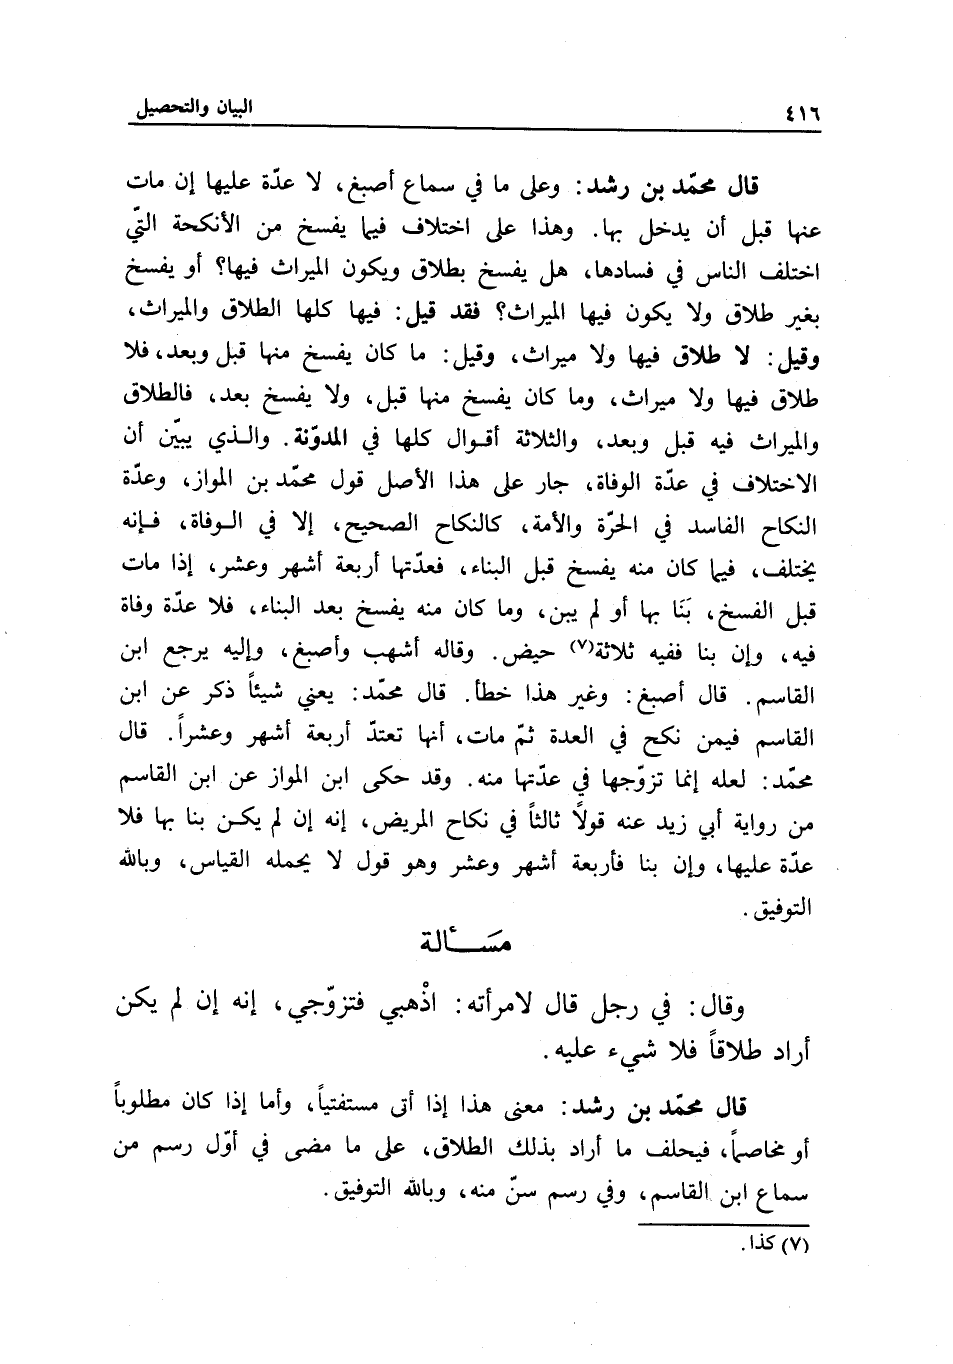 ٤١٦ البيان والتحصيل
قال محمّد بن رشد: وعلى ما في سماع أصبغ، لا عدّة عليها إن مات
عنها قبل أن يدخل بها. وهذا على اختلاف فيما يفسخ من الأنكحة التّي
اختلف الناس في فسادها، هل يفسخ بطلاق ويكون الميراث فيها؟ أو يفسخ
بغير طلاق ولا يكون فيها الميراث؟ فقد قيل: فيها كلها الطلاق والميراث،
وقيل: لا طلاق فيها ولا ميراث، وقيل: ما كان يفسخ منها قبل وبعد، فلا
طلاق فيها ولا ميراث، وما كان يفسخ منها قبل، ولا يفسخ بعد، فالطلاق
والميراث فيه قبل وبعد، والثلاثة أقوال كلها في المدوّنة. والذي يبيّن أن
الاختلاف في عدّة الوفاة، جار على هذا الأصل قول محمّد بن المواز، وعدّة
النكاح الفاسد في الحرّة والأمة، كالنكاح الصحيح، إلا في الوفاة، فإنه
يختلف، فيما كان منه يفسخ قبل البناء، فعدّتها أربعة أشهر وعشر، إذا مات
قبل الفسخ، بَنَا بها أو لم يبن، وما كان منه يفسخ بعد البناء، فلا عدّة وفاة
فيه، وإن بنا ففيه ثلاثة(٧) حيض. وقاله أشهب وأصبغ، وإليه يرجع ابن
القاسم. قال أصبغ: وغير هذا خطأ. قال محمّد: يعني شيئاً ذكر عن ابن
القاسم فيمن نكح في العدة ثمّ مات، أنها تعتدّ أربعة أشهر وعشراً. قال
محمّد: لعله إنما تزوّجها في عدّتها منه. وقد حكى ابن المواز عن ابن القاسم
من رواية أبي زيد عنه قولاً ثالثاً في نكاح المريض، إنه إن لم يكن بنا بها فلا
عدّة عليها، وإن بنا فأربعة أشهر وعشر وهو قول لا يحمله القياس، وبالله
التوفيق.
مَسَأَلة
وقال: في رجل قال لامرأته: اذْهبي فتزوّجي، إنه إن لم يكن
أراد طلاقاً فلا شيء عليه.
قال محمّد بن رشد: معنى هذا إذا أتى مستفتياً، وأما إذا كان مطلوباً
أو مخاصماً، فيحلف ما أراد بذلك الطلاق، على ما مضى في أوّل رسم من
سماع ابن القاسم، وفي رسم سنّ منه، وبالله التوفيق.
(٧) كذا.